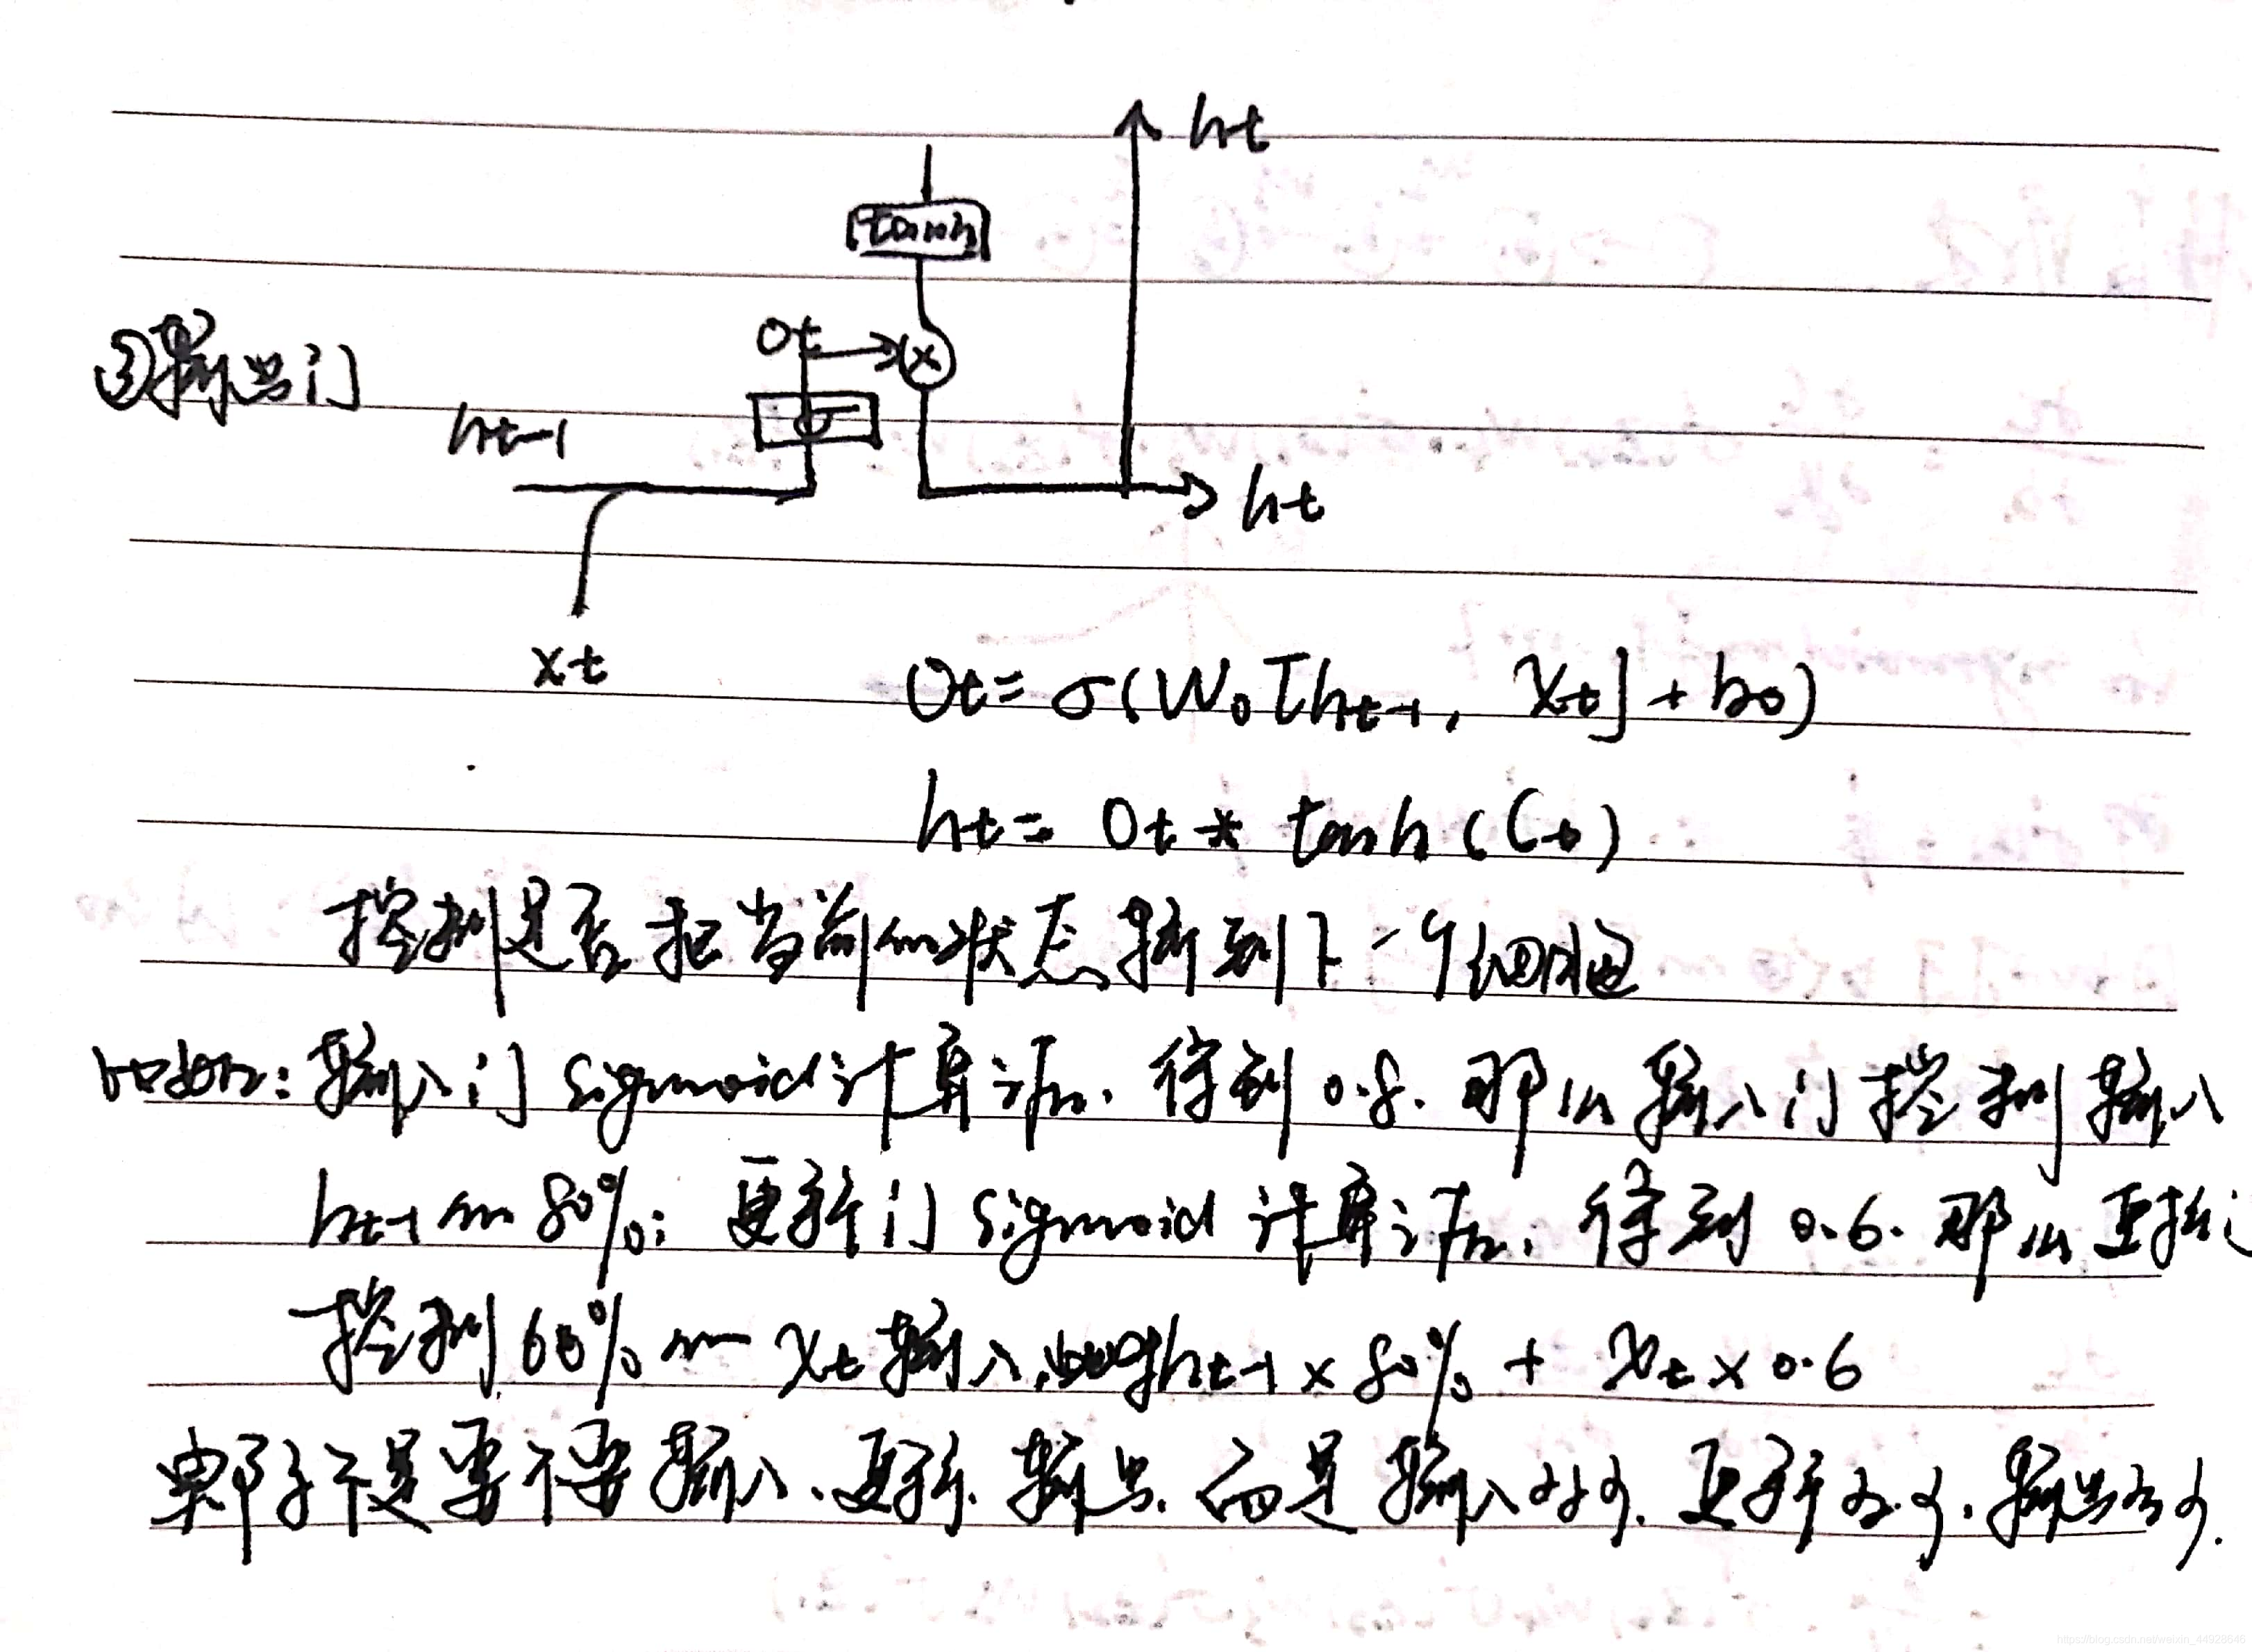 ht
tanh
Ot
③输出门
ht-1
σ
ht
xt
Ot = σ(Wo[ht-1, Xt] + bo)
ht = Ot * tanh(Ct)
控制是否把当前的状态输到下一个
比如: 输入门 sigmoid 计算 得到 0.8. 那么输入门控制输入
ht-1 的 80%; 更新门 sigmoid 计算 得到 0.6. 那么更新门
控制 60% 的 Xt 输入, ht-1 × 80% + Xt × 0.6
不是要不要输入、更新、输出. 而是输入多少. 更新多少. 输出多少.
https://blog.csdn.net/weixin_44928646